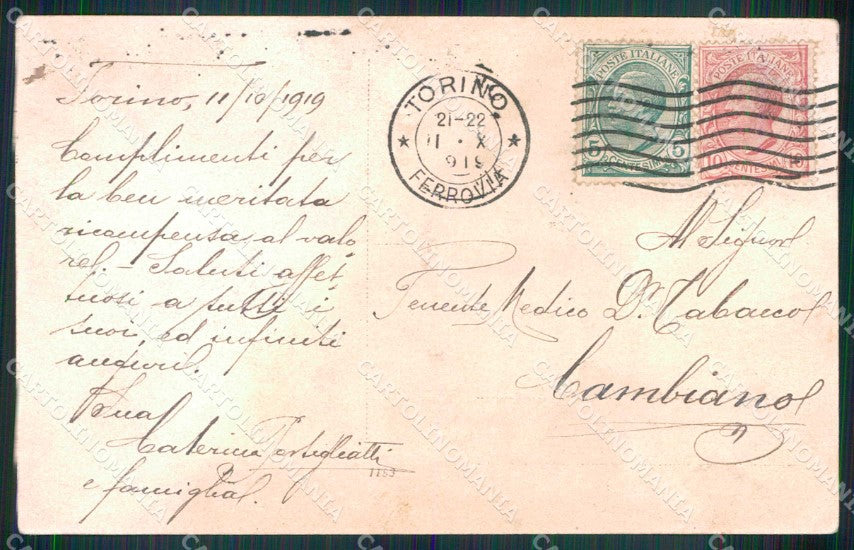 Torino, 11/10/1919
Complimenti per
la ben meritata
ricompensa al valo
re. - Saluti affet
tuosi a tutti i
suoi, ed infiniti
auguri.
Caterina
e famiglia.
TORINO
21-22
11 · X
919
FERROVIA
POSTE ITALIANE
5 CENTESIMI 5
POSTE ITALIANE
10 CENTESIMI 10
Al Signor
Tenente Medico Dr. Tabacco
Cambiano
1193
CARTOLINOMANIA